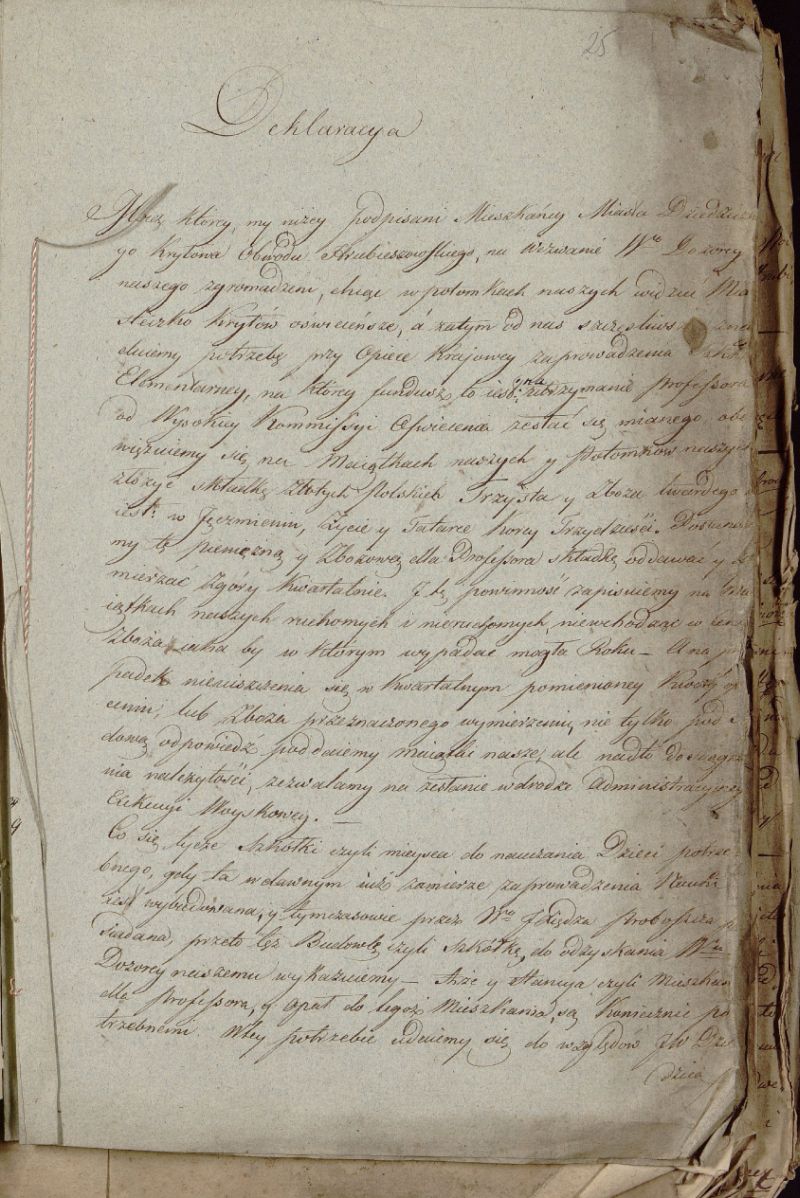 25
Deklaracya
Przez którą, my niżey podpisani Mieszkańcy Miasta Dziedziczne
go Kryłowa Obwodu Hrubieszowskiego, na wezwanie Wgo Dozorcy
naszego zgromadzeni, chcąc w potomkach naszych widzieć Mia
steczko Kryłów oświeceńsze, á zatym od nas szczęśliwsze
potrzebę przy Opiece Krajowey zaprowadzenia Szkoły
Elementarney, na którey fundusz, to iest: na utrzymanie Professora
od Wysokiey Kommissyi Oświecenia zesłać się mianego obo
wiązuiemy się, na Maiątkach naszych y Potomków naszych
złożyć składkę Złotych Polskich Trzysta y Zboża twardego
iest: w Jęczmieniu, Życie y Tatarce Korcy Trzydzieści.
my tę pienięzną y Zbożową dla Professora składkę oddawać y
mierzać Zgory Kwartalnie. J tę powinność zapisuiemy na Ma
iątkach naszych ruchomych i nieruchomych, niewchodząc w Cenę
Zboża iaka by w którym wypadać mogła Roku — A na przy
padek nieuiszczenia się w Kwartalnym pomienioney Kwoty
ceniu, lub Zboża przeznaczonego wymierzeniu, nie tylko pod
dową odpowiedź poddaiemy maiątki nasze, ale nadto do
nia należytości, zezwalamy na zesłanie w drodze Administracyiney
Exekucyi Woyskowey. —
Co się tycze Szkółki czyli mieysca do nauczania Dzieci potrze
bnego, gdy ta w dawnym iuż zamierze, zaprowadzenia Nauki
iest wybudowana, y tymczasowie przez Wgo Jxiędza Proboszcza p
siadana, przeto tęż Budowlę czyli Szkółkę, do odzyskania Wmu
Dozorcy naszemu wykazuiemy — Aże y Stancyia czyli Mieszkan
dla Professora, y Opał do tegoż Mieszkania, są Koniecznie po
trzebnemi. W tey potrzebie udaiemy się do względów JW Dzie
dzica